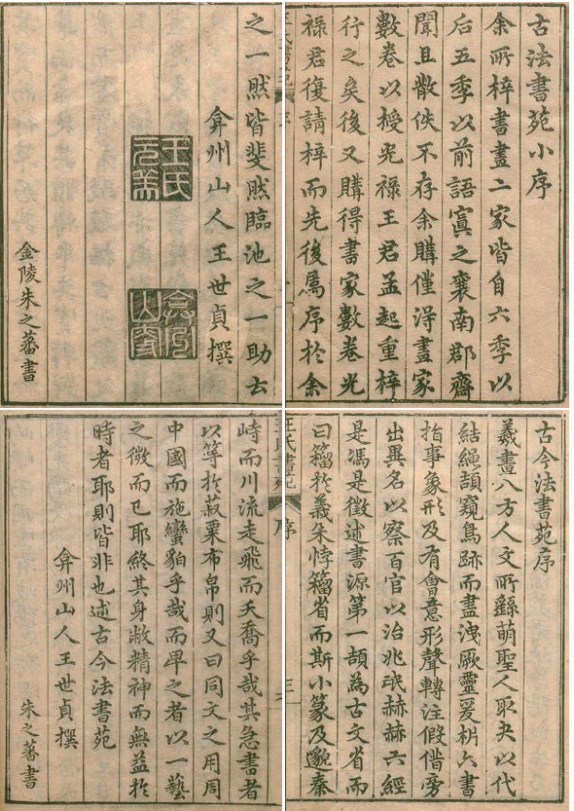 古法書苑小序
余所梓書畫二家皆自六季以
后五季以前語寘之襄南郡齋
聞且散佚不存余購僅淂畫家
數卷以授光祿王君孟起重梓
行之矣後又購得書家數卷光
祿君復請梓而先後屬序於余
之一然皆斐然臨池之一助云
弇州山人王世貞撰
王氏元美
金陵朱之蕃書
古今法書苑序
羲畫八方人文所繇萌聖人取夬以代
結繩頡窺鳥跡而盡洩厥靈爰析六書
指事象形及有會意形聲轉注假借旁
出異名以察百官以治兆民赫赫六經
是馮是徵述書源第一頡為古文省而
曰籀於義未悖籀省而斯小篆及邈秦
王氏畫苑 序 三
峙而川流走飛而夭喬乎哉其急書者
以等於菽粟布帛則又曰同文之用周
中國而施蠻貊乎哉而卑之者以一藝
之微而已耶終其身敝精神而無益於
時者耶則皆非也述古今法書苑
弇州山人王世貞撰
朱之蕃書